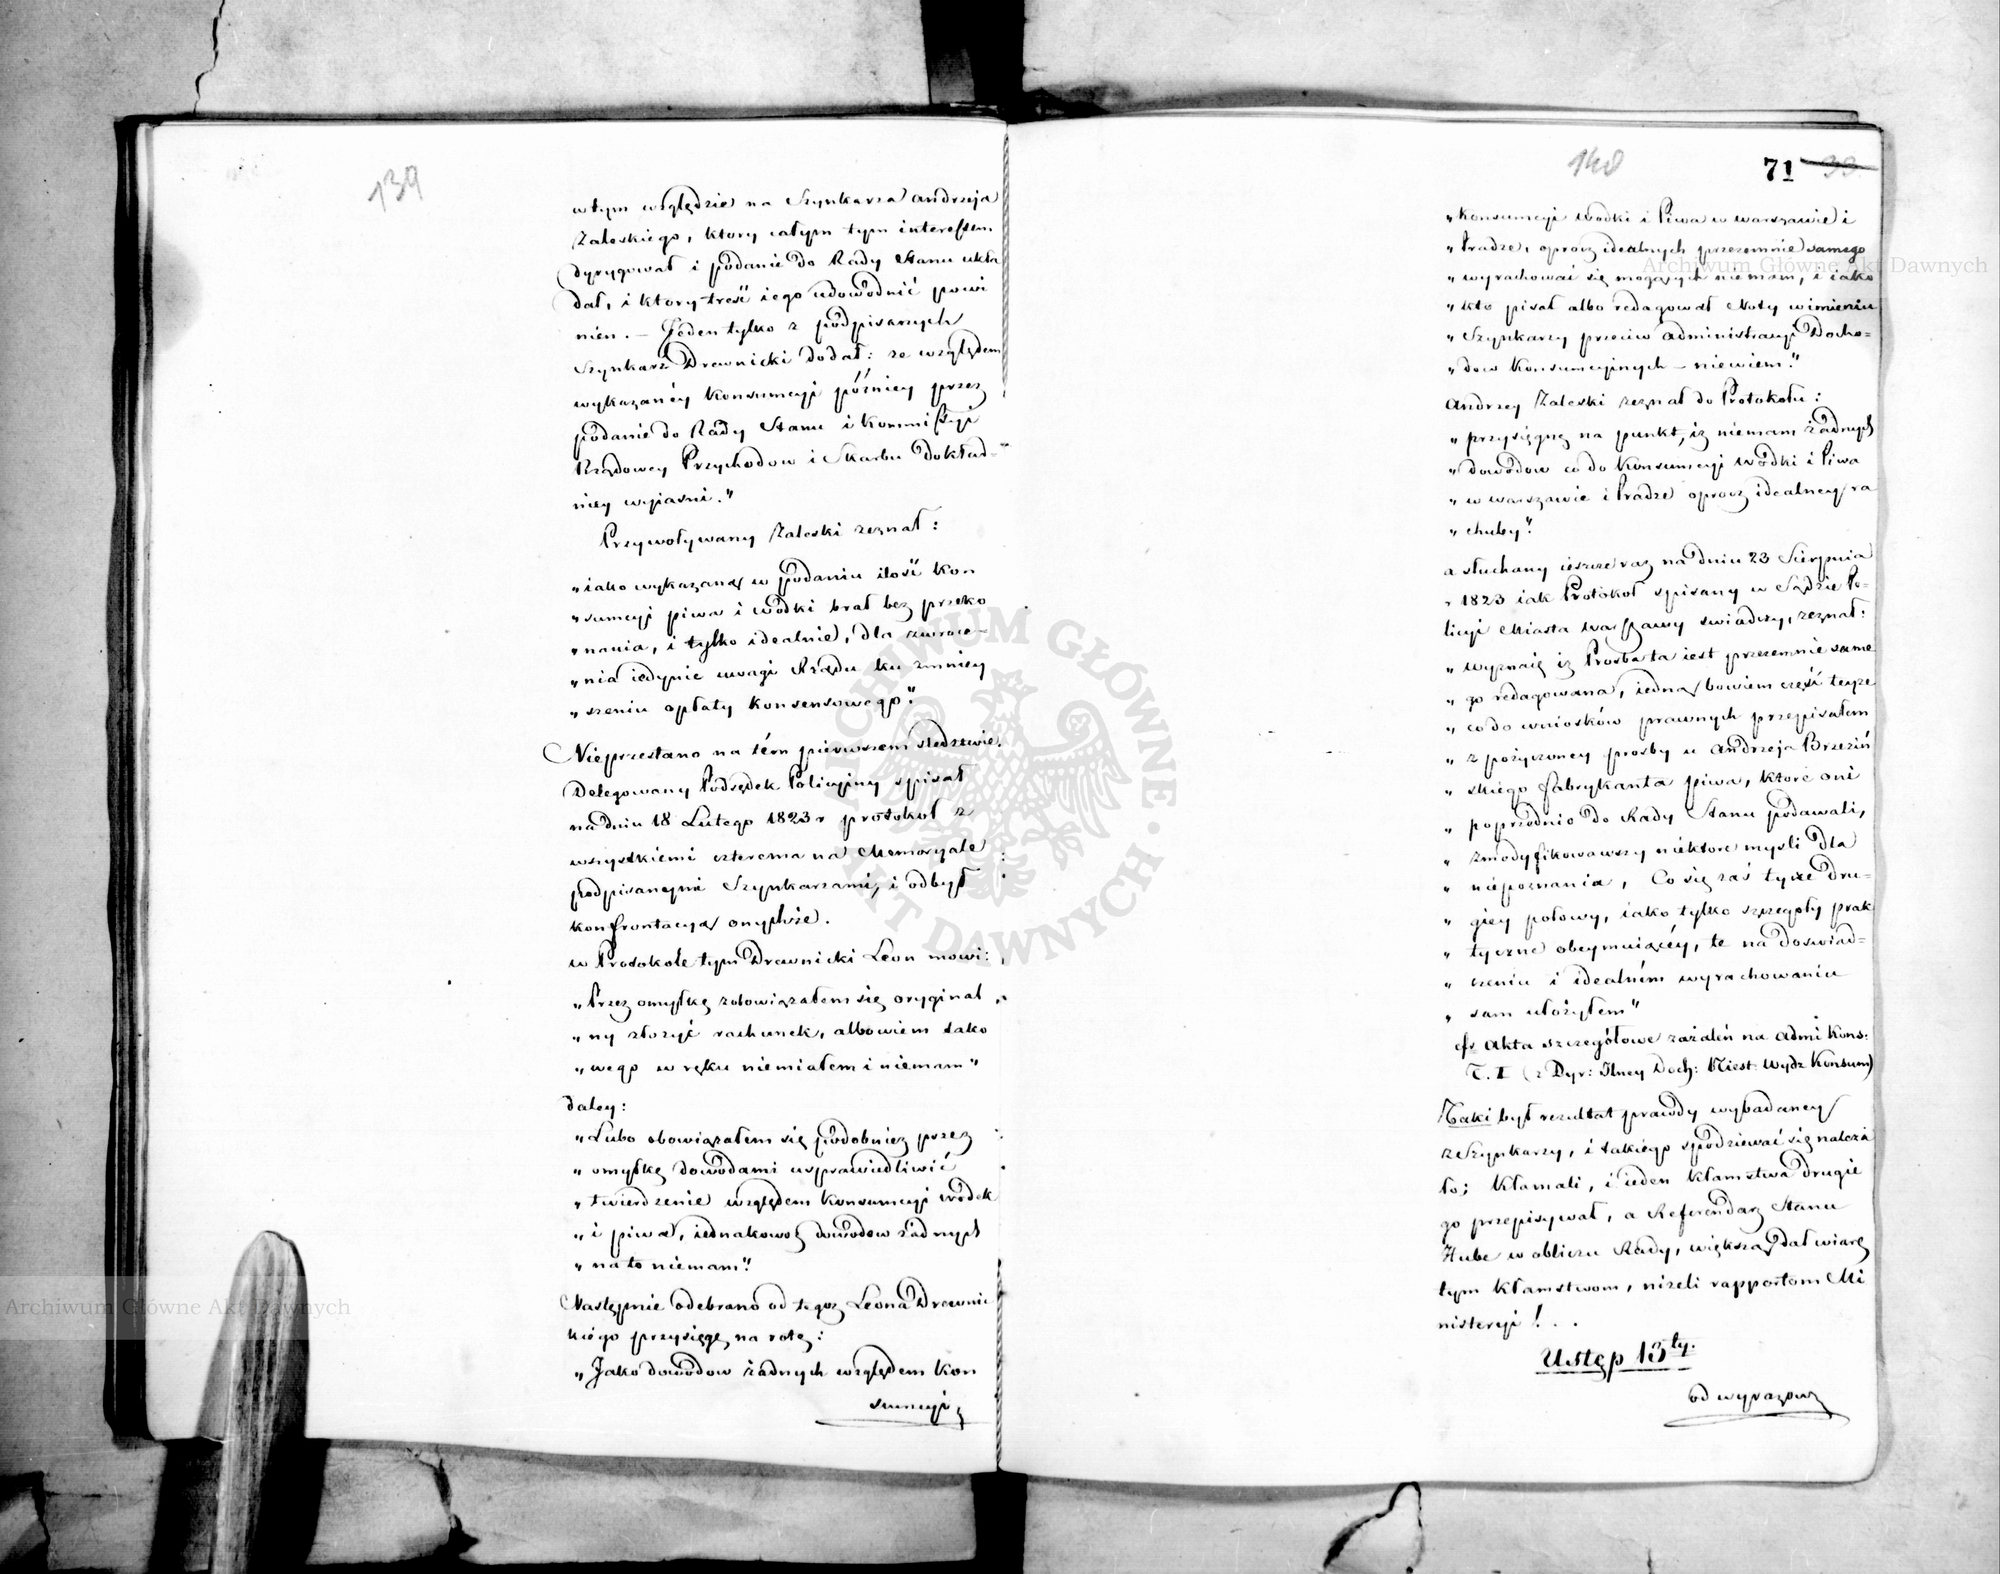 139
w tym względzie na Szynkarza Andrzeja
Zaleskiego, ktory całym tym interessem
dyrygował i podanie do Rady Stanu ukła
dał, i ktory treść iego udowodnić powi
nien. — Jeden tylko z podpisanych
Szynkarz Drewnicki dodał: ze względem
wykazanéy konsumcyi późniey przez
podanie do Rady Stanu i Kommissyi
Rządowey Przychodow i Skarbu dokład-
niey wyiasni."
Przywoływany Zaleski zeznał:
"iako wykazaną w podaniu ilość kon
"sumcyi piwa i wodki brał bez przeko
"nania, i tylko idealnie, dla zwroce-
"nia iedynie uwagi Rządu ku zmniey
"szeniu opłaty konsensowego."
Nieprzestano na tém pierwszem sledztwie.
Delegowany Podsędek Policyiny spisał
na dniu 18 Lutego 1823 r protokoł z
wszystkiemi czterema na Memoryale
podpisanymi Szynkarzami, i odbył
konfrontacyą onychże.
w Protokole tym Drewnicki Leon mowi:
"Przez omyłkę zobowiązałem się oryginal
"ny złożyć rachunek, albowiem tako
"wego w ręku niemiałem i niemam"
daley:
"Lubo obowiązałem się podobniez przez
"omyłkę dowodami usprawiedliwić
"twierdzenie względem konsumcyi wodek
"i piwa, iednakowoż dowodow żadnych
"na to niemam."
Następnie odebrano od tegoż Leona Drewnic
kiego przysięgę na rotę:
"Jako dowodow żadnych względem kon
sumcyi
140
71 33
"konsumcyi wodki i Piwa w warszawie i
"Pradze, oprocz idealnych przezemnie samego
"wyrachować się mogących niemam, i iako
"kto pisał albo redagował Noty w imieniu
"Szynkarzy przeciw administracyi Docho=
"dow Konsumcyinych — niewiem."
Andrzey Zaleski zeznał do Protokołu:
"przysięgnę na punkt, iz niemam żadnych
"dowodow co do Konsumcyi wodki i Piwa
"w warszawie i Pradze oprocz idealney ra
"chuby."
a słuchany ieszcze raz na dniu 23 Sierpnia
1823 iak Protokoł spisany w Sądzie Po-
licyi Miasta Warszawy swiadczy, zeznał:
"wyznaię iz Prosba ta iest przezemnie same
"go redagowana, iedną bowiem część teyze
"co do wniosków prawnych przepisałem
"z pożyczoney prosby u Andrzeja Brzeziń
"skiego fabrykanta piwa, ktoré oni
"poprzednio do Rady Stanu podawali,
"zmodyfikowawszy niektore mysli dla
"niepoznania, Co się zaś tycze dru-
"giey połowy, iako tylko szczegoły prak
"tyczne obeymuiącéy, te na doswiad=
"czeniu i idealném wyrachowaniu
"sam ułożyłem"
cfr Akta szczegółowe zażaleń na Admi Kons:
T. I (z Dyr: Jlney Doch: Niest. Wydz Konsum)
Taki był rezultat prawdy wybadaney
z Szynkarzy, i takiego spodziewać się należa
ło; kłamali, i ieden kłamstwa drugie
go przepisywał, a Referendarz Stanu
Hube w obliczu Rady, większą dał wiarę
tym kłamstwom, niżeli rapportom Mi
nisteryi! . .
Ustęp 13ty.
od wyrazow
Archiwum Główne Akt Dawnych
Archiwum Główne Akt Dawnych
ARCHIWUM GŁÓWNE AKT DAWNYCH